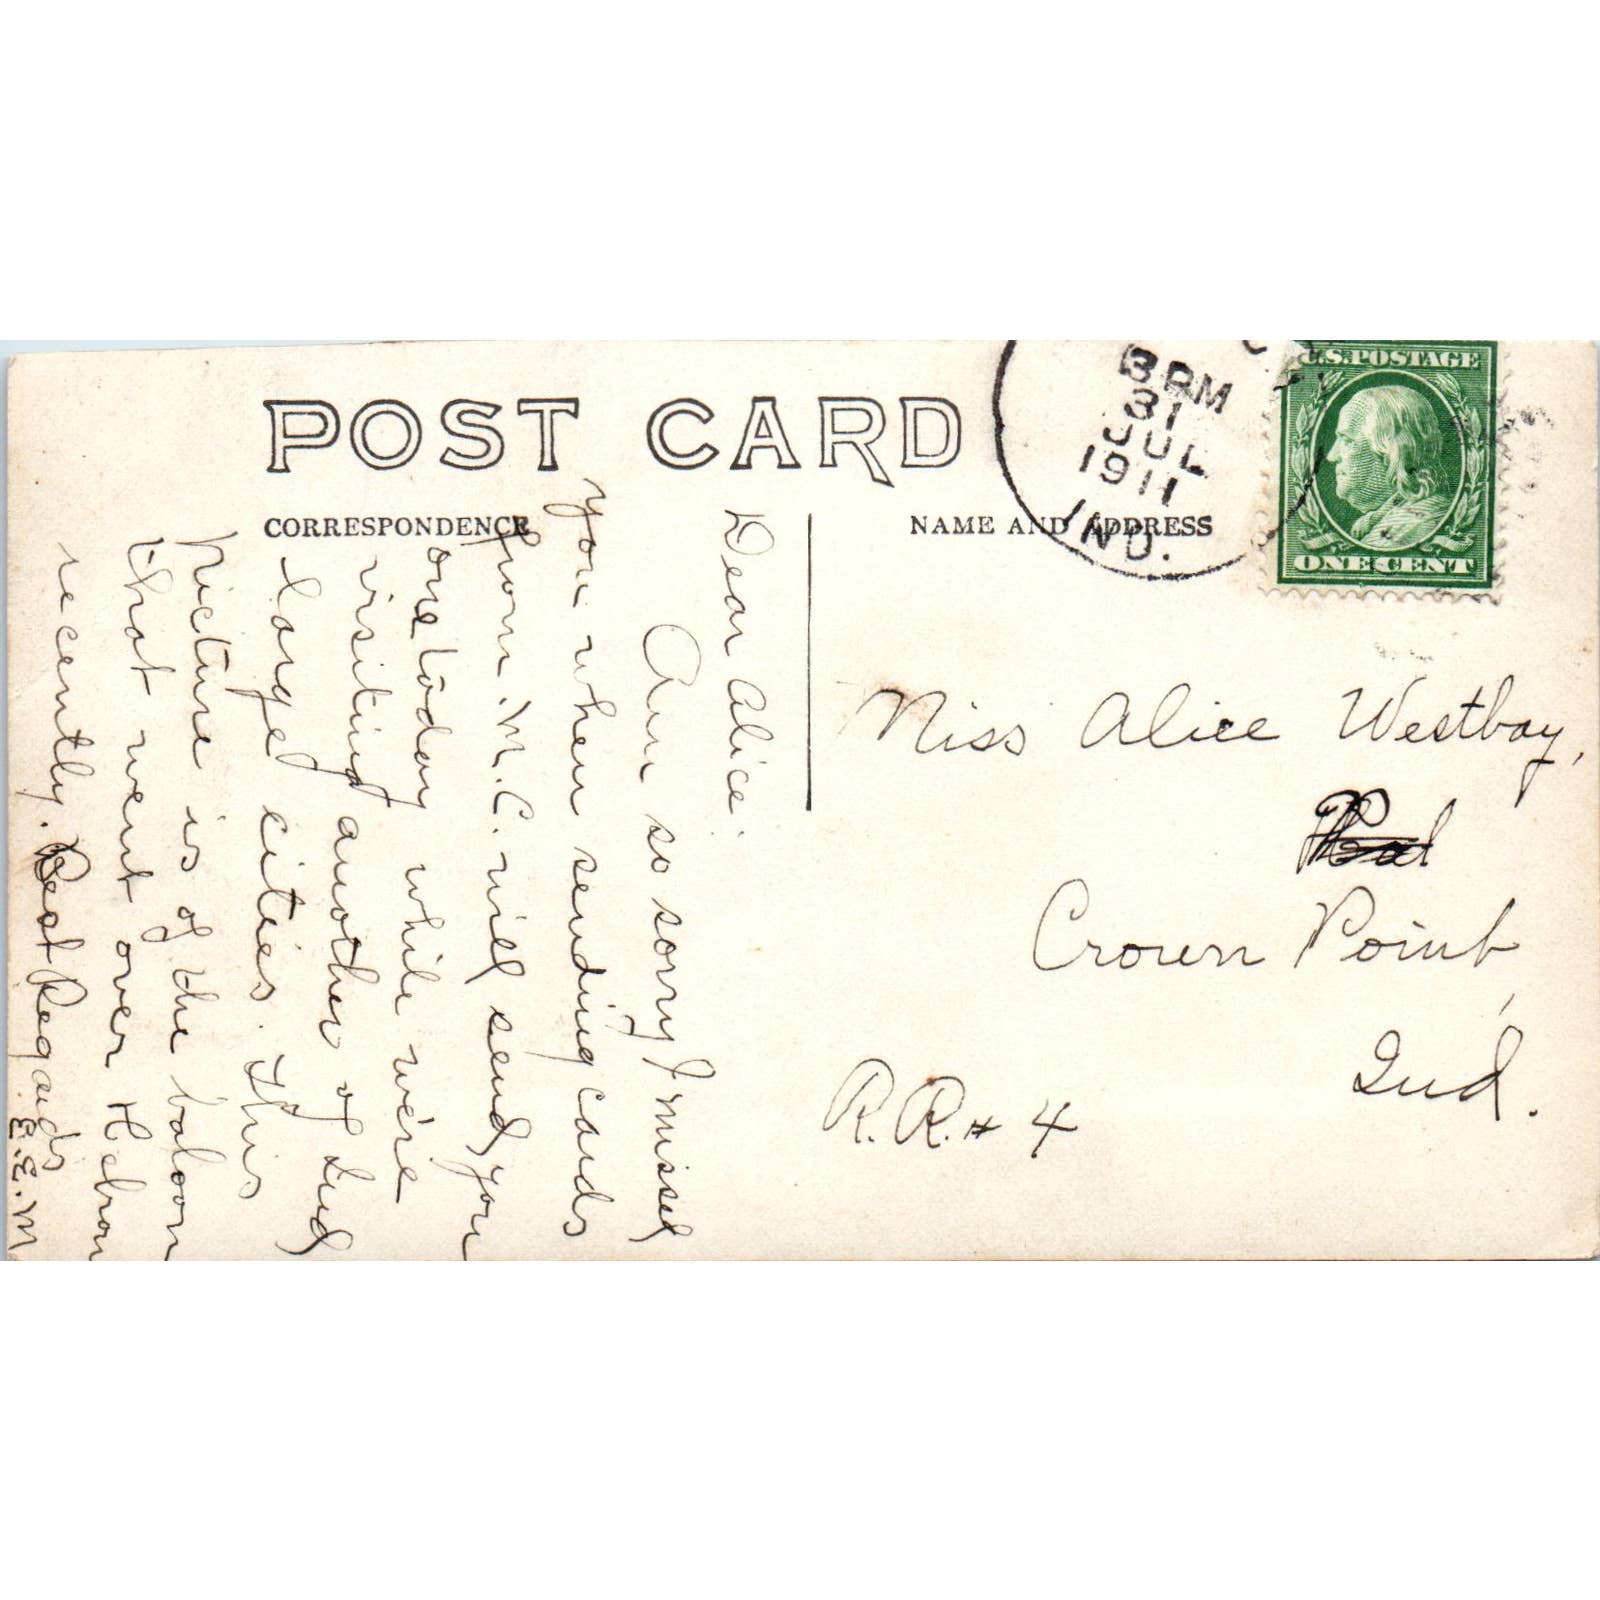 POST CARD
CORRESPONDENCE
NAME AND ADDRESS
3 PM
31
JUL
1911
IND.
U.S. POSTAGE
ONE CENT
Dear Alice.
Am so sorry I missed
you when sending cards
from M.C. will send you
one today while we're
visiting another of Ind
larges cities. This
Picture is of the baloon
that went over Hebron
recently. Best Regards
E.E.M
Miss Alice Westbay,
Crown Point,
Ind.
R.R. # 4